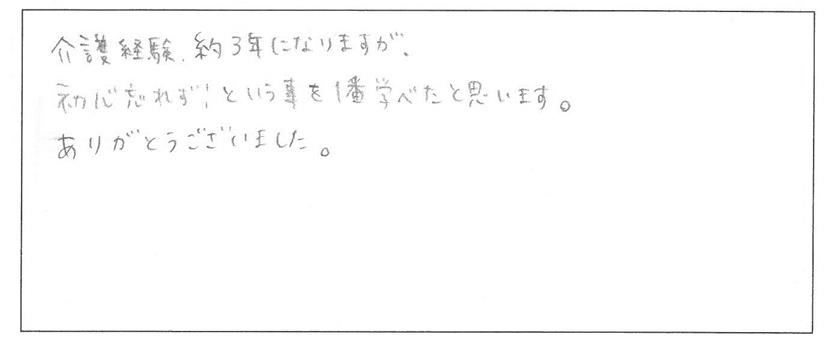 介護経験、約3年になりますが、
初心忘れず!という事を1番学べたと思います。
ありがとうございました。